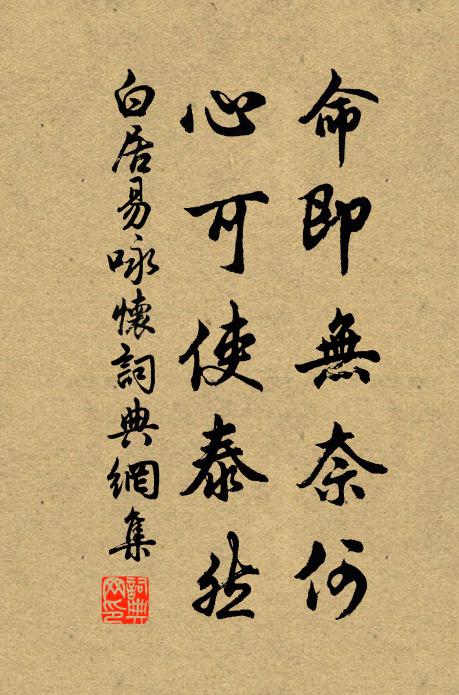 命即無奈何
心可使泰然
白居易咏懷詞典網集
詞典網印